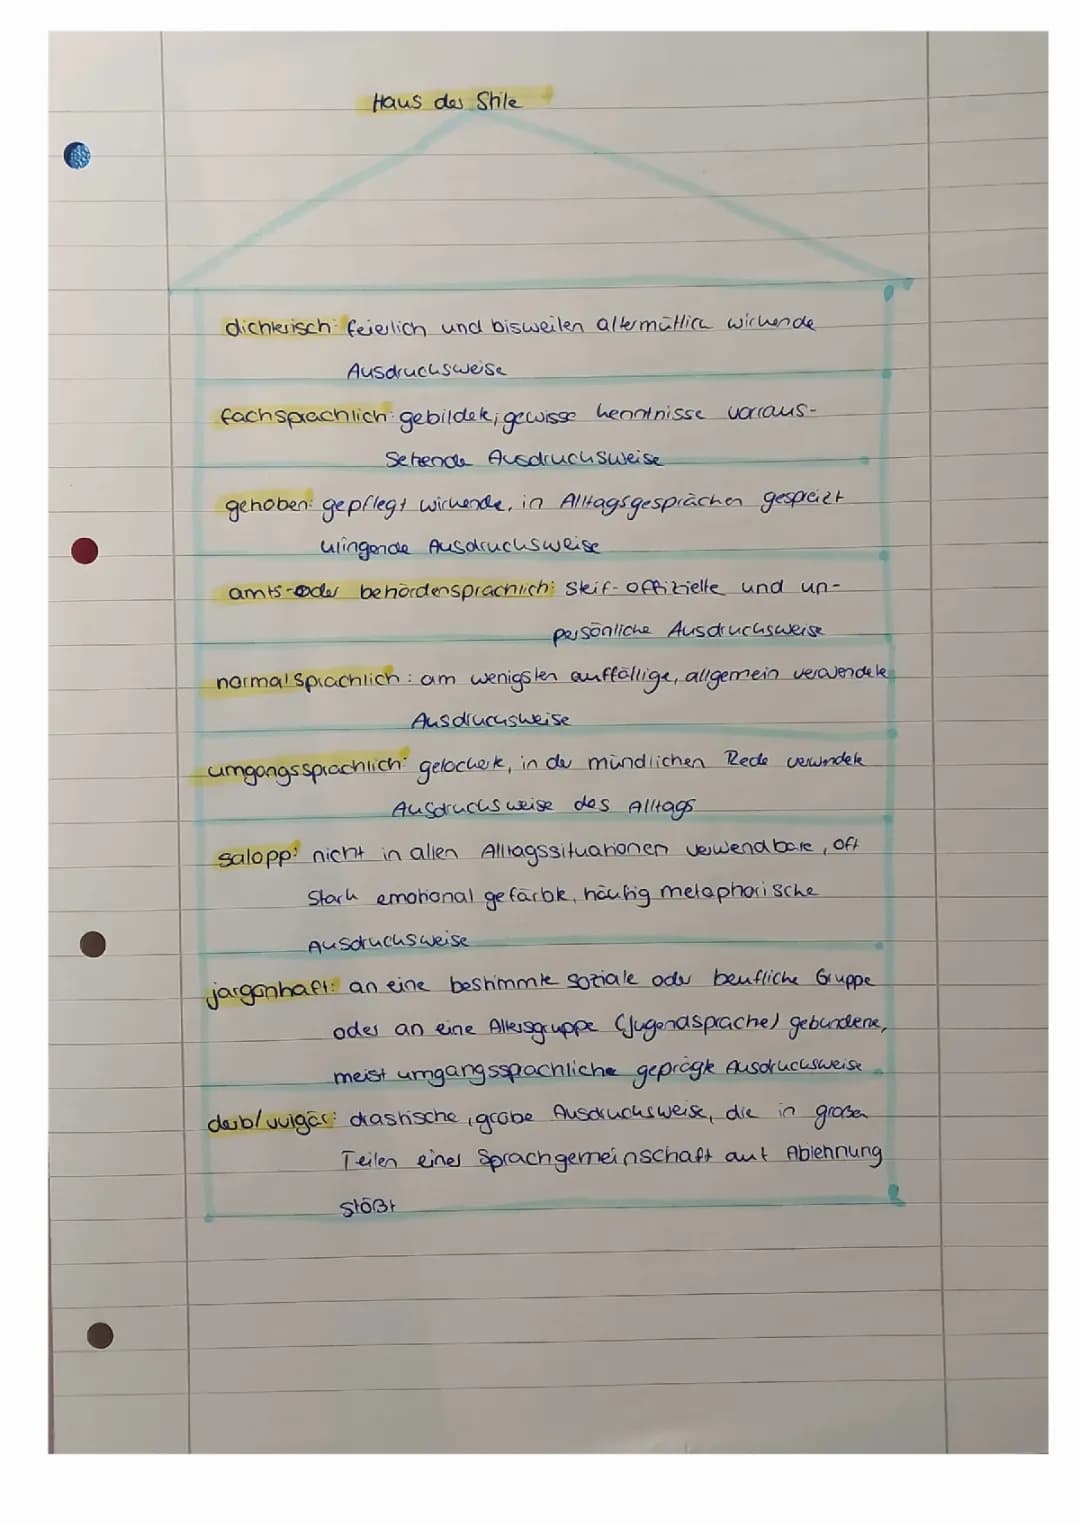 Haus der Stile
dichterisch: feierlich und bisweilen altermütlich wirkende
Ausdrucksweise
fachsprachlich: gebildete, gewisse kenntnisse vorraus-
setzende Ausdrucksweise
gehoben: gepflegt wirkende, in Alltagsgesprächen gespreizt
klingende Ausdrucksweise
amts- oder behördensprachlich: steif-offizielle und un-
persönliche Ausdrucksweise
normalsprachlich: am wenigsten auffällige, allgemein verwendete
Ausdrucksweise
umgangssprachlich: gelockerte, in der mündlichen Rede verwendete
Ausdrucksweise des Alltags
salopp: nicht in allen Alltagssituationen verwendbare, oft
stark emotional gefärbte, häufig metaphorische
Ausdrucksweise
jargonhaft: an eine bestimmte soziale oder berufliche Gruppe
oder an eine Altersgruppe (Jugendsprache) gebundene,
meist umgangssprachliche geprägte Ausdrucksweise
derb/vulgär: drastische, grobe Ausdrucksweise, die in großen
Teilen einer Sprachgemeinschaft auf Ablehnung
stößt